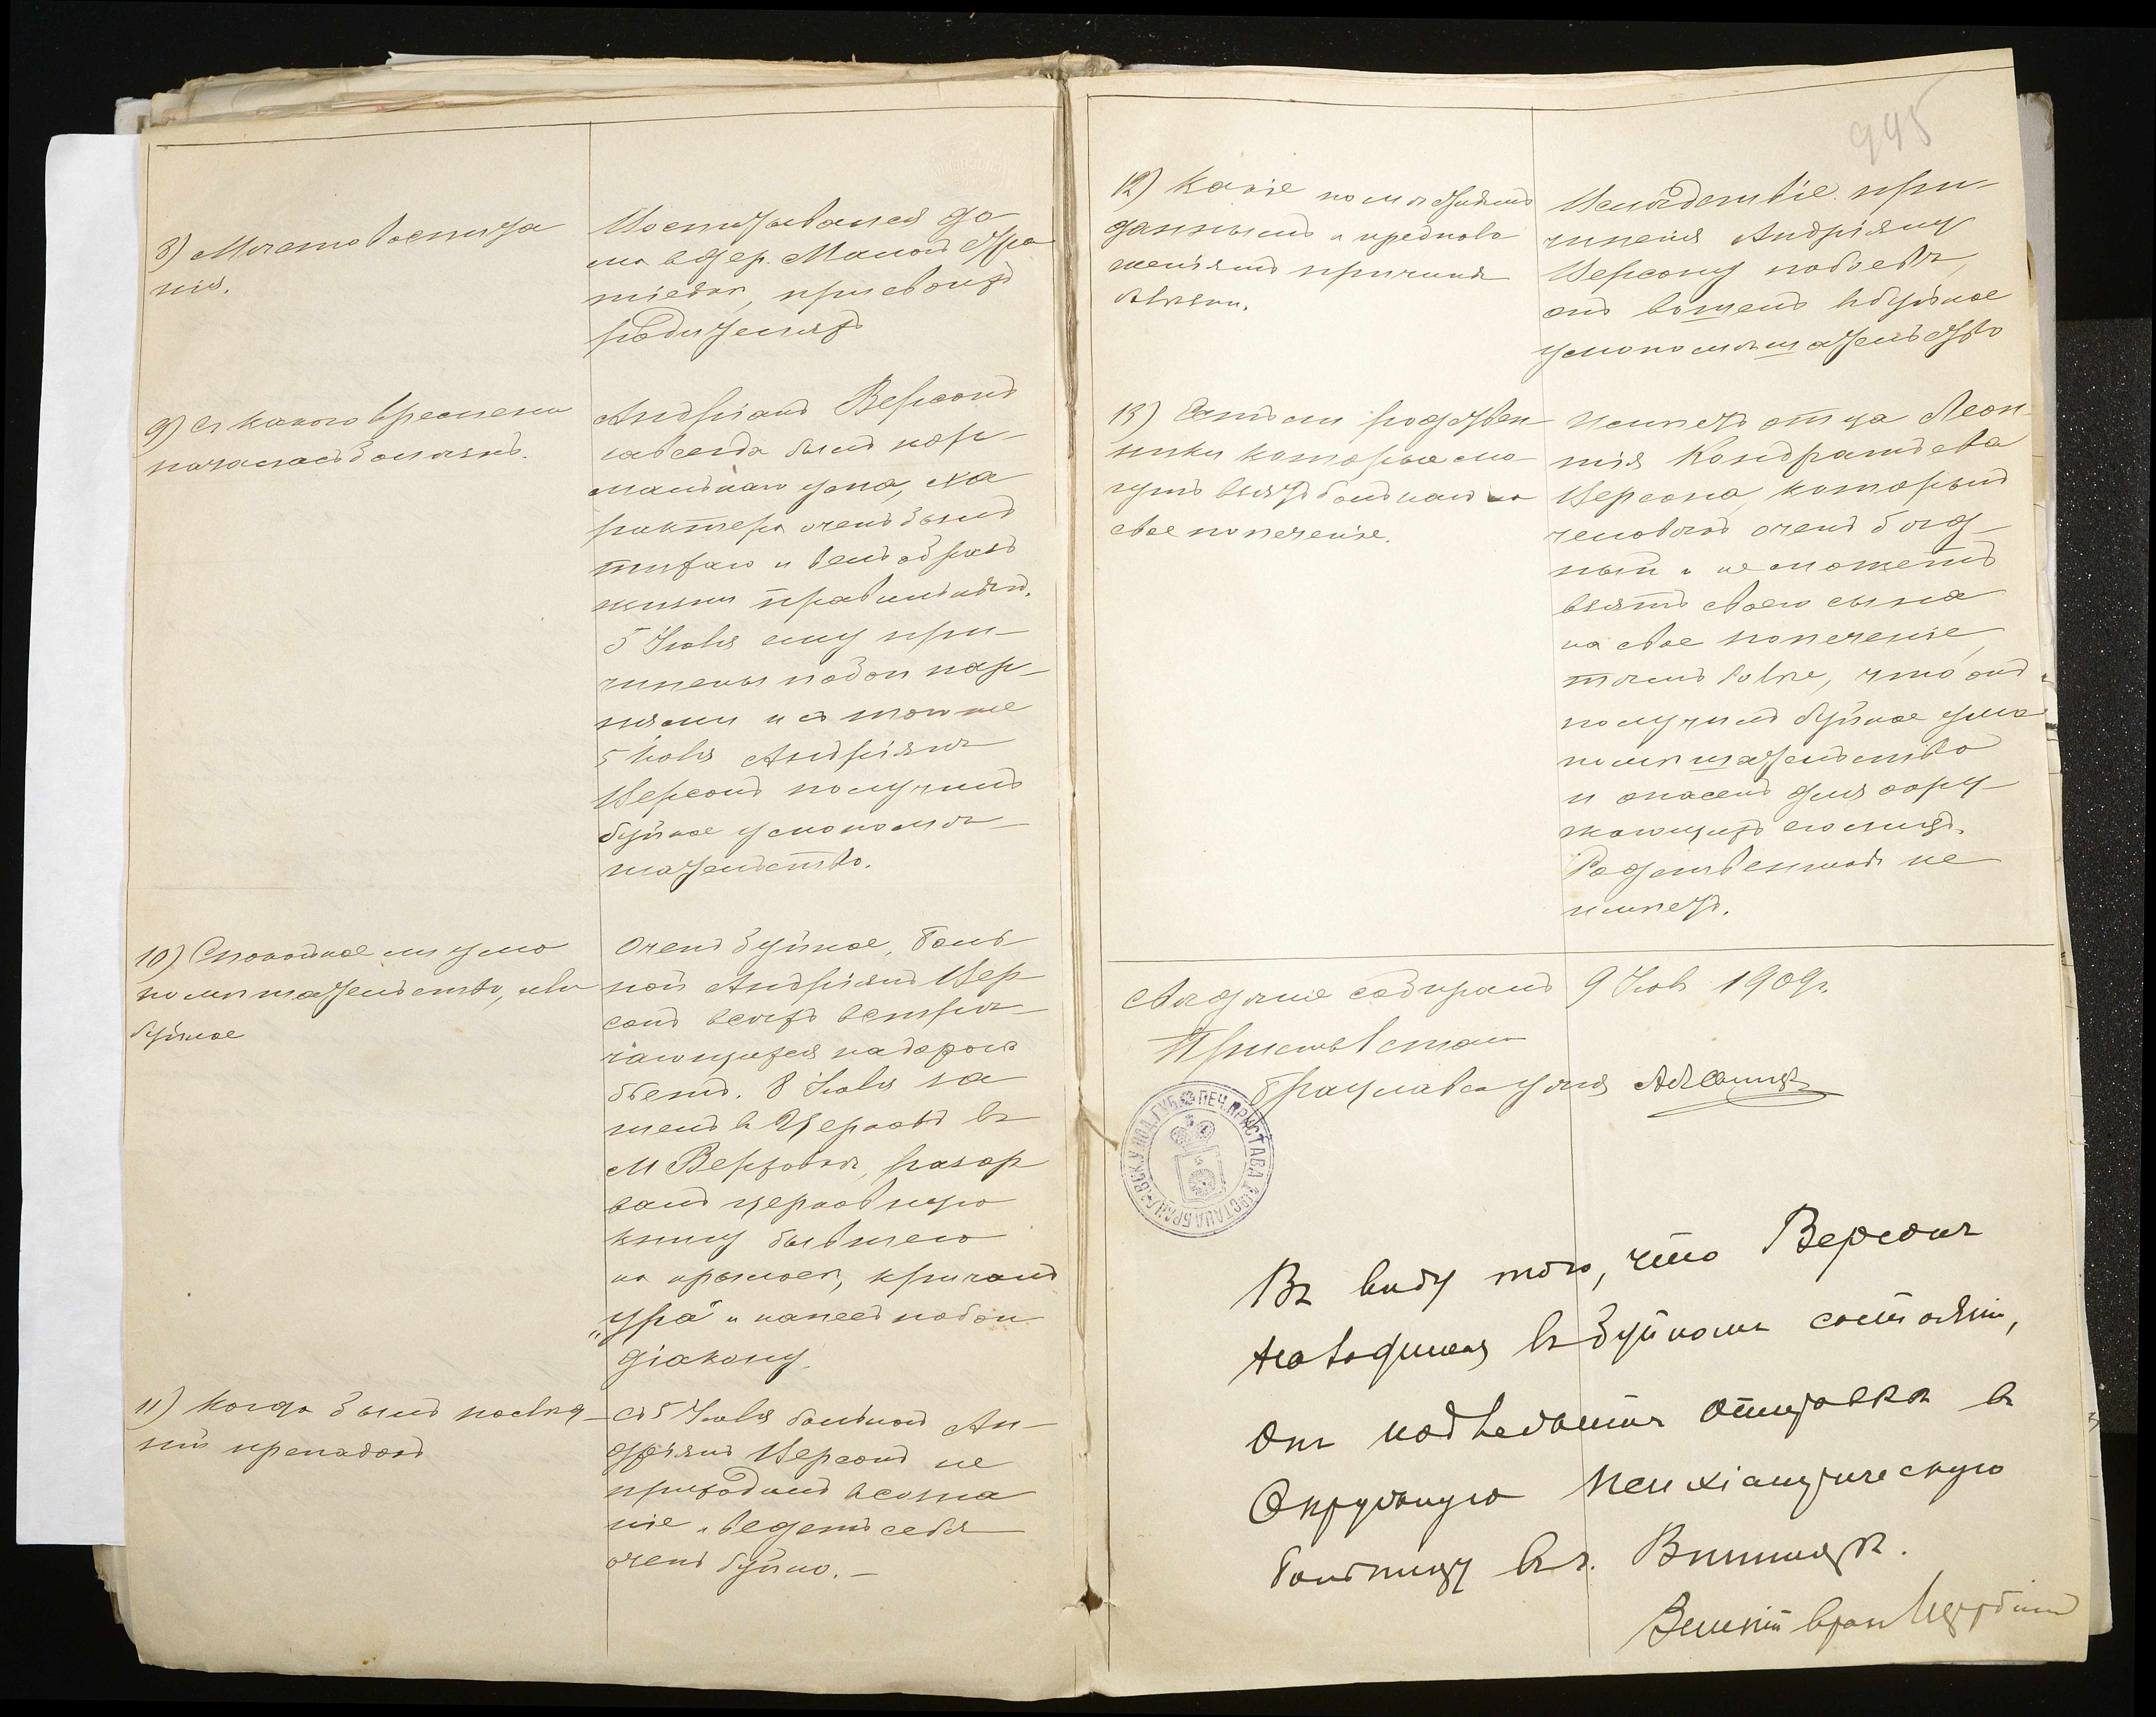 8) Место воспита
нія.
Воспитывался до
ма в дер. Малой
при своихъ
родителяхъ
9) Съ какого времени
началась болѣзнь.
Андріанъ Версонъ
навсегда былъ нор-
мальнаго ума, ха
рактера очень былъ
тихаго и велъ образъ
жизни правильный.
5 Іюля ему при-
чинены побои пар-
нями и съ того же
5 Іюля Андріанъ
Версонъ получилъ
буйное умопомѣ-
шательство.
10) Спокойное ли умо
помѣшательство, или
буйное
Очень буйное, боль
ной Андріанъ Вер
сонъ всѣхъ встрѣ-
чающихся на дорогѣ
бьетъ. 8 Іюля за
шелъ в Церковь въ
М Верховкѣ, разор
валъ церковную
книгу бывшего
на крылосѣ, кричалъ
„ура" и нанесъ побои
діакону.
11) Когда былъ послѣд-
ній припадокъ
Съ 5 Іюля больной Ан-
дріанъ Версонъ не
приходилъ в созна
ніе и ведетъ себя
очень буйно. —
945
12) Какіе по
даннымъ и предполо
женіямъ причина
болѣзни.
Вслѣдствіе при-
чиненія Андріану
Версону побоевъ,
онъ вошелъ в буйное
умопомѣшательство
13) Есть ли родствен-
ники которые мо
гутъ взять больнаго на
свое попеченіе.
Имѣетъ отца Леон-
тія Кондратьева
Версона, который
человѣкъ очень бѣд-
ный и не можетъ
взять своего сына
на свое попеченіе,
тѣмъ болѣе, что онъ
получилъ буйное умо
помѣшательство
и опасенъ для окру-
жающихъ его лицъ.
Родственниковъ не
имѣетъ.
Свѣдѣніе собиралъ 9 Іюля 1909 г.
Приставъ стана
Брацлавск уѣзда
ПЕЧ. ПРИСТАВА СТАНА БРАЦЛАВСК. У. ПОД. ГУБ.
Въ виду того, что Версонъ
находился въ буйномъ состояніи,
онъ подлежитъ отправкѣ въ
Окружную психіатрическую
больницу въ г. Винницѣ.
Земскій врач